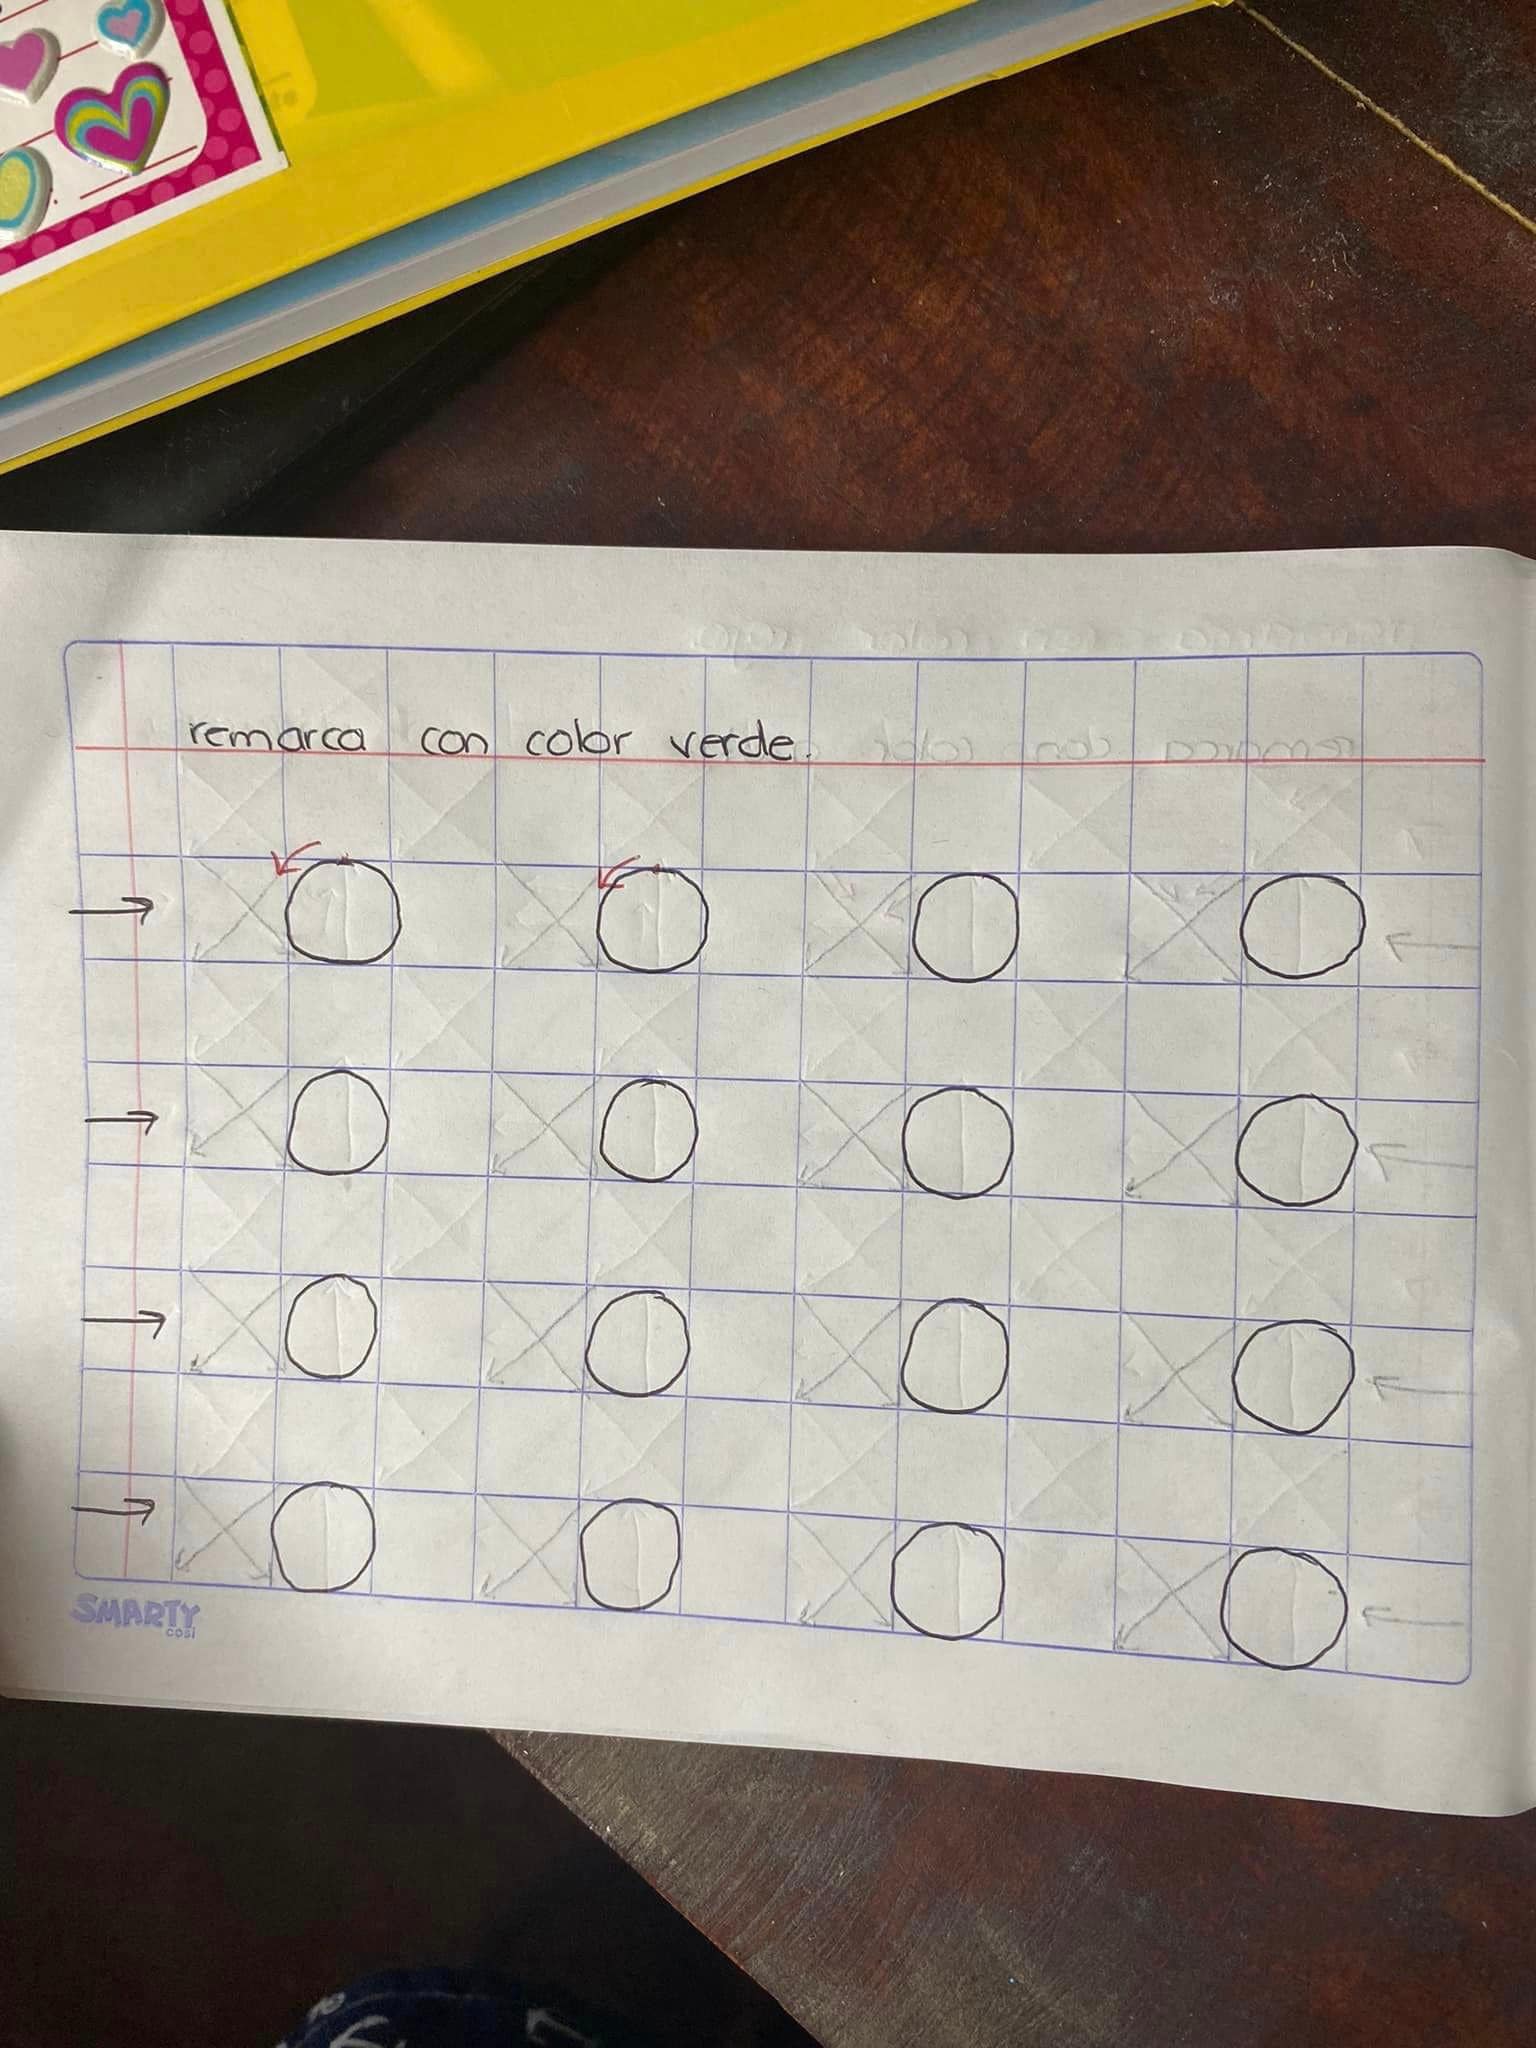 remarca con color verde.
SMARTY
cosi